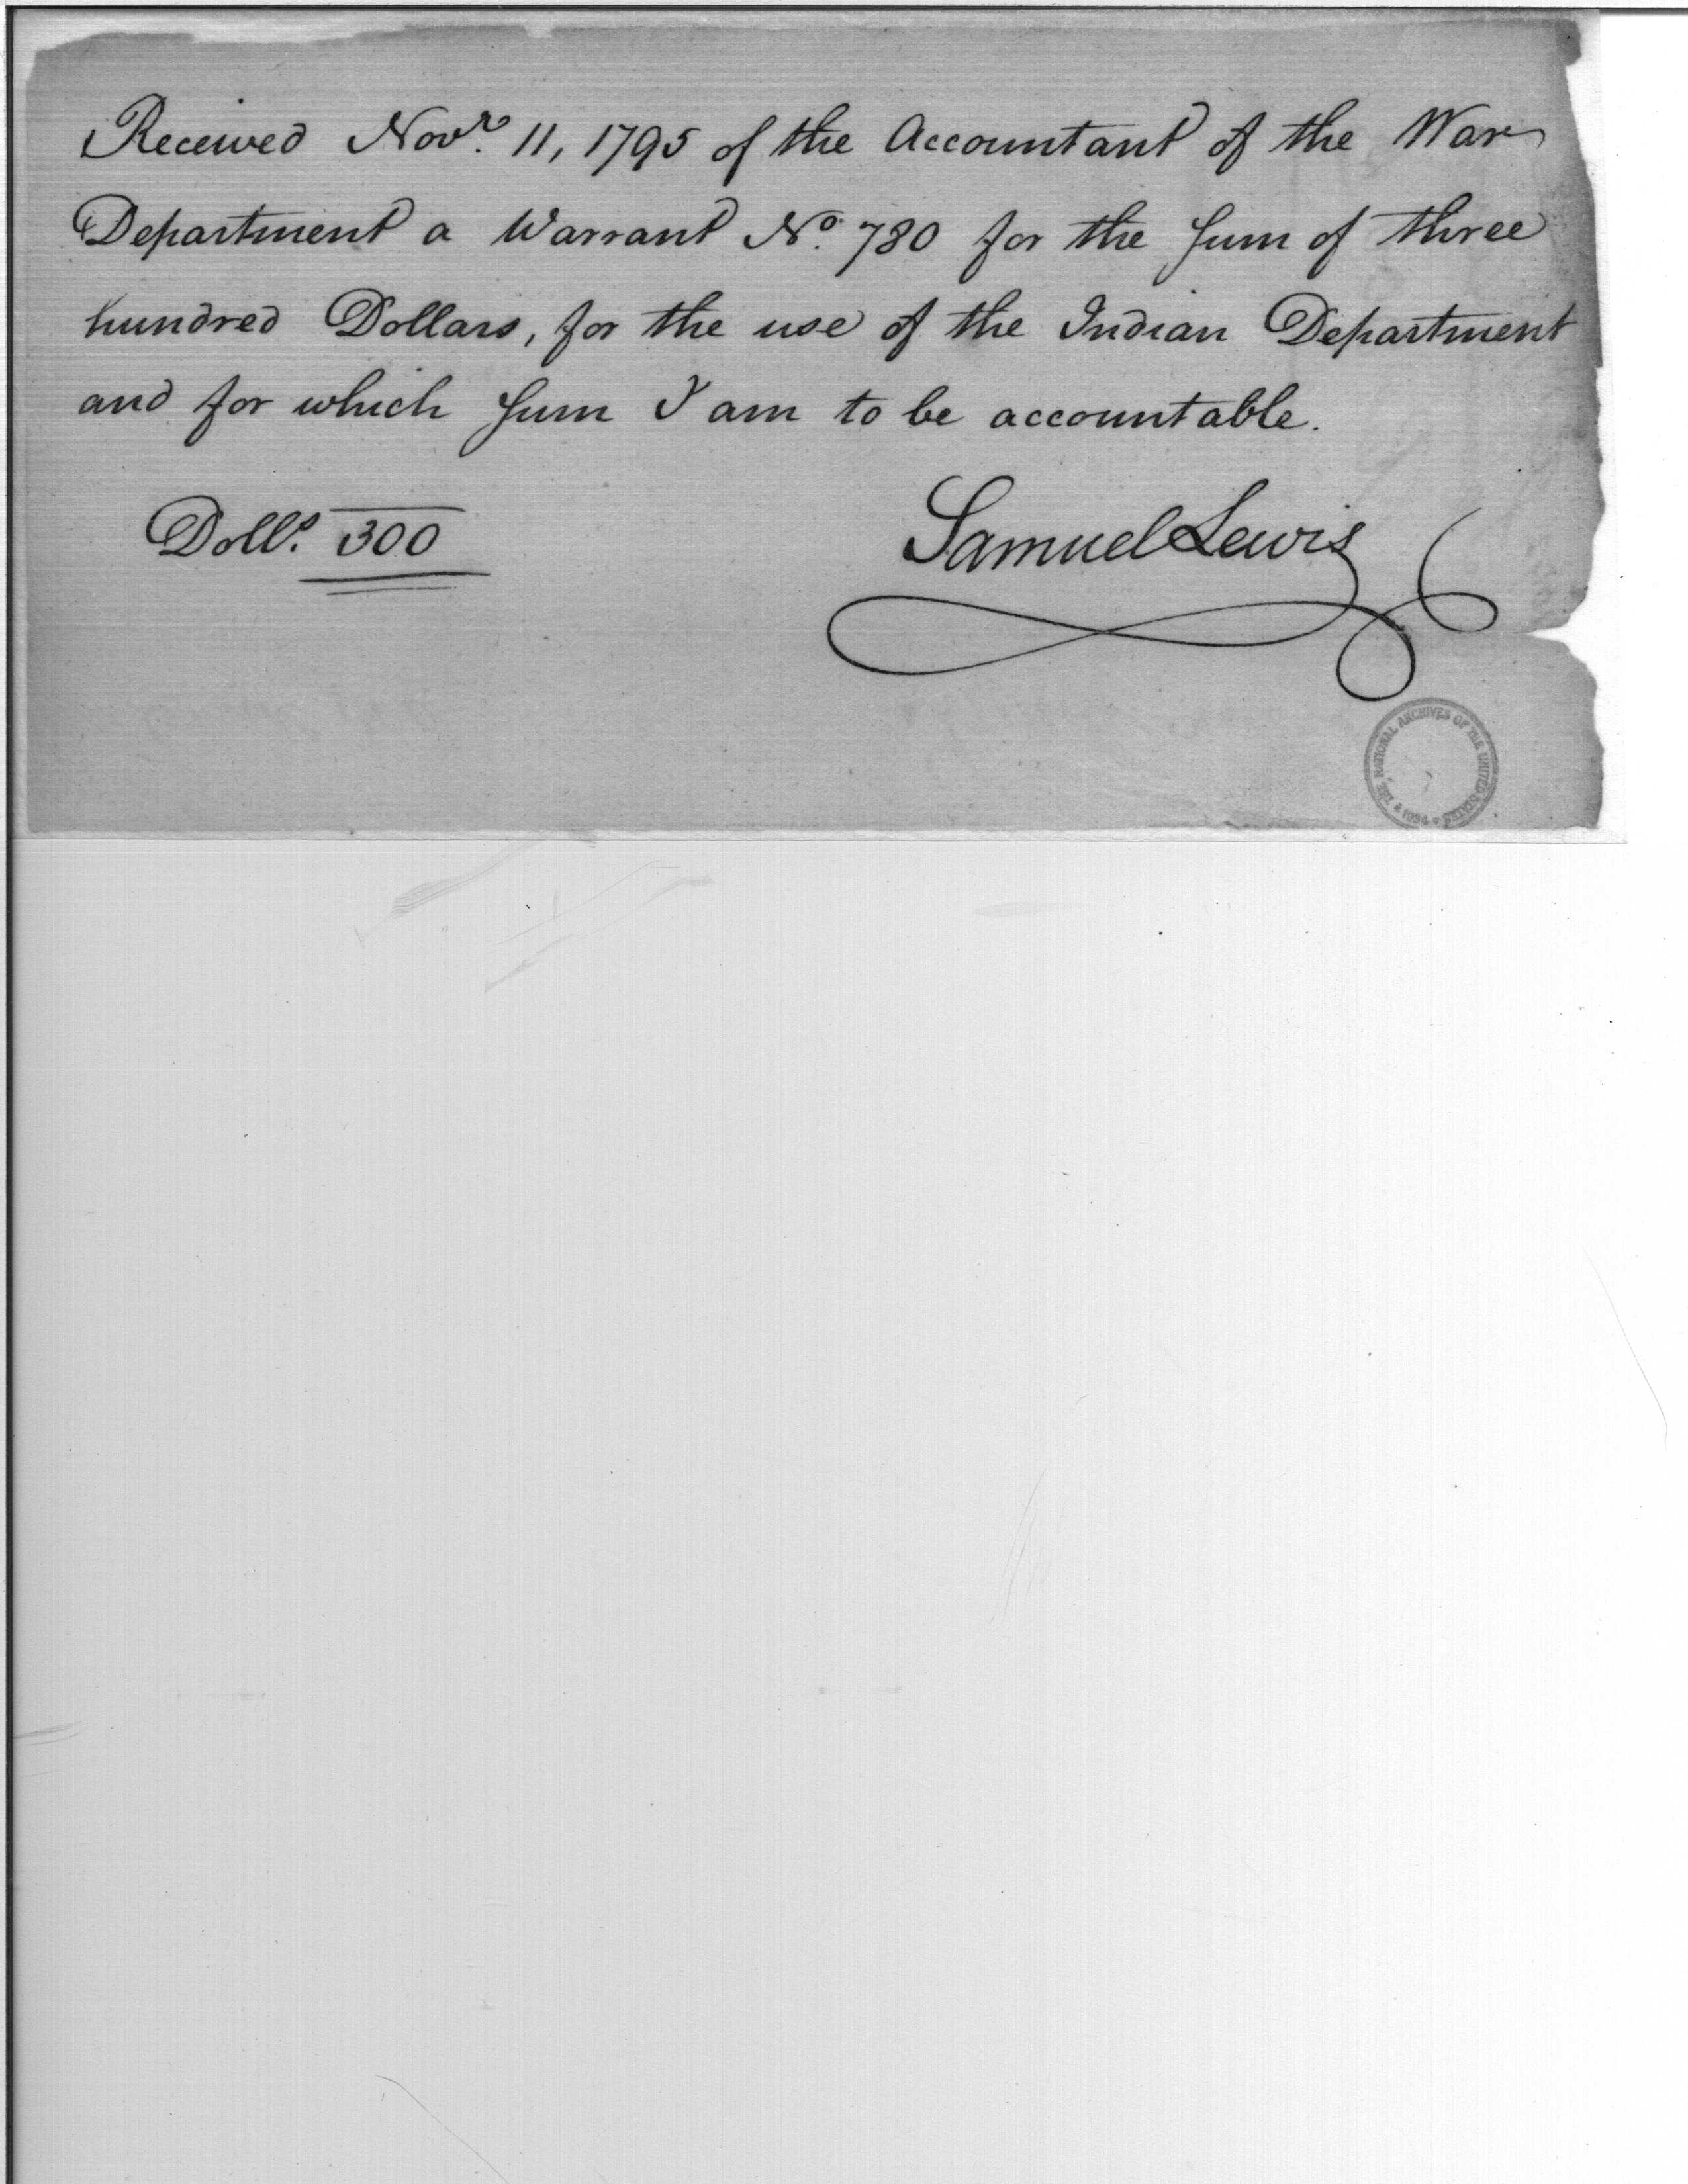 Received Novr. 11, 1795 of the Accountant of the War
Department a Warrant No. 780 for the sum of three
hundred Dollars, for the use of the Indian Department
and for which sum I am to be accountable.
Dolls. 300
Samuel Lewis
THE NATIONAL ARCHIVES OF THE UNITED STATES
1934